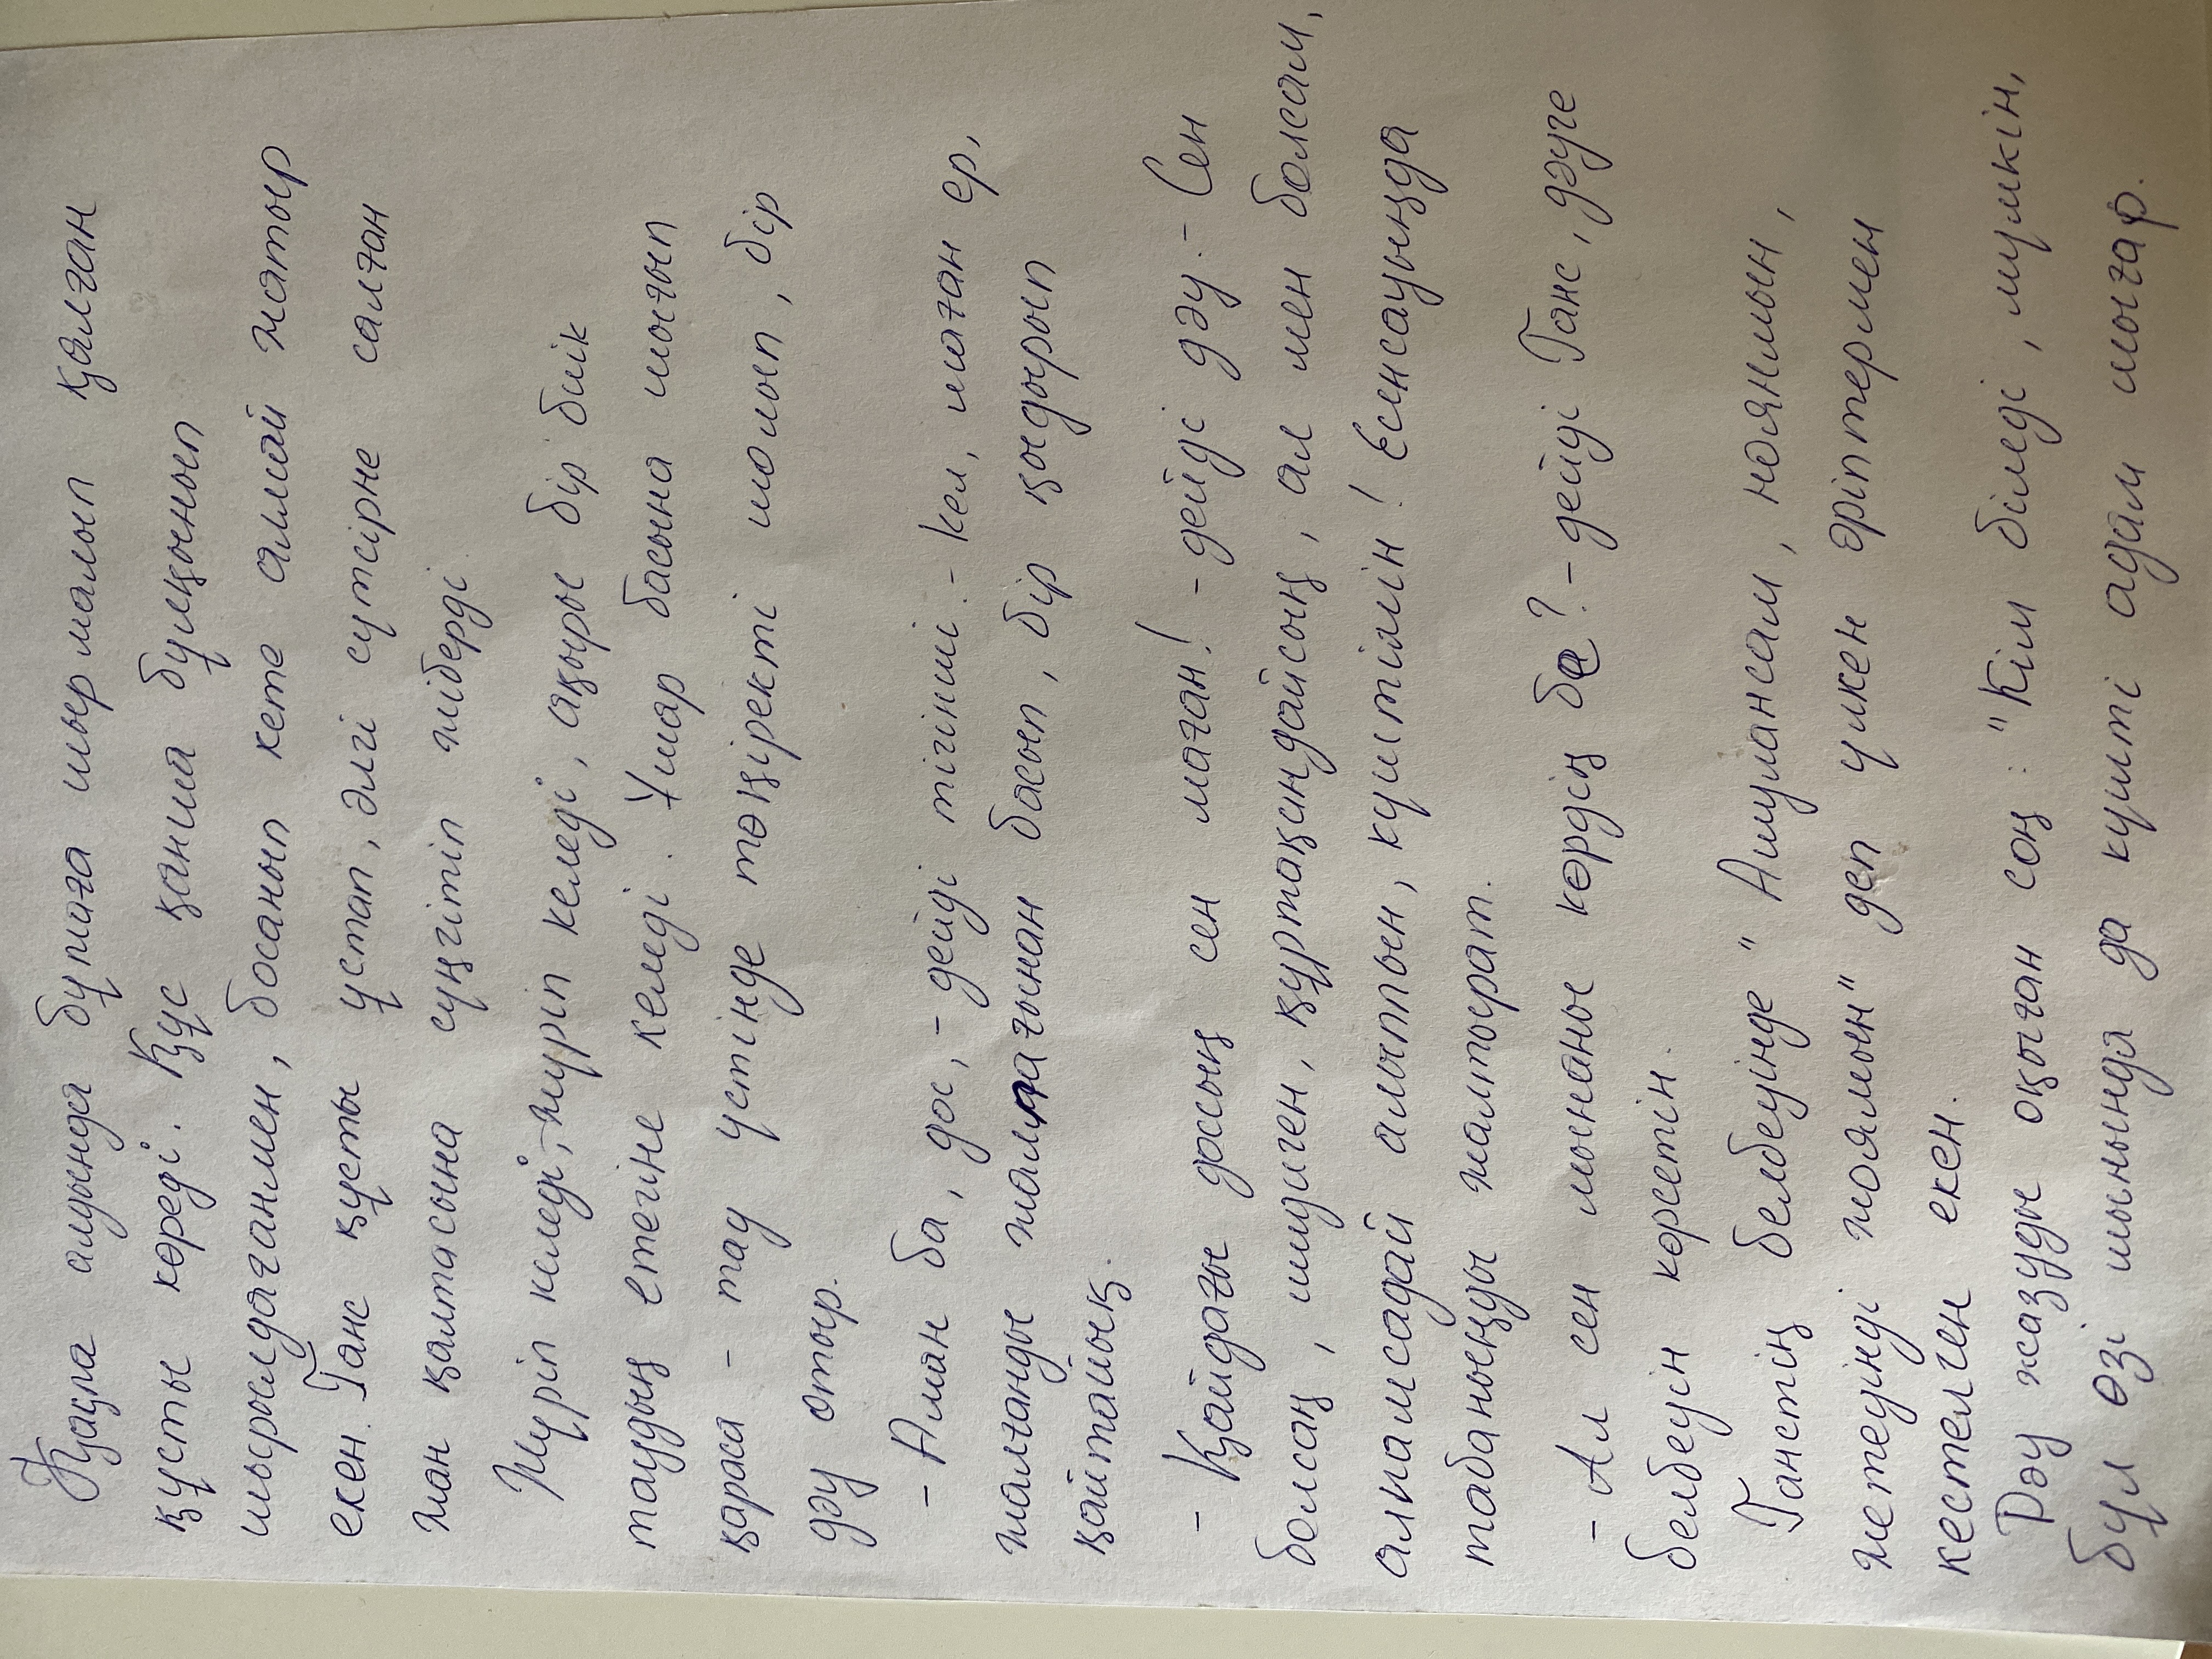 Қақпа алдында бұтаға шырмалып қалған
құсты көреді. Құс қанша бұлқынып
шырылдағанмен, босанып кете алмай жатыр
екен. Ганс құсты ұстап, әлгі сүтсірне салған
жан қалтасына сүңгітіп жіберді.
Жүріп келеді, жүріп келеді, ақыры бір биік
таудың етегіне келеді. Ұшар басына шығып
қараса - тау үстінде төңіректі шолып, бір
дәу отыр.
- Аман ба, дос, - дейді тігінші. - Кел, маған ер,
жалғанды жалпағынан басып, бір қыдырып
қайтайық.
- Қайдағы доссың сен маған! - дейді дәу. - Сен
болсаң, шидиген, құртақандайсың, ал мен болсам,
алпамсадай алыппын, күштімін! Есенсауыңда
табаныңды жалтырат.
- Ал сен мынаны көрдің бе? - дейді Ганс, дәуге
белбеуін көрсетін.
Ганстің белбеуінде "Ашулансам, ноянмын,
жетеуінді жоямын" деп үлкен әріптермен
кестелген екен.
Дәу жазуды оқыған соң: "Кім біледі, мүмкін,
бұл өзі шынында да күшті адам шығар.